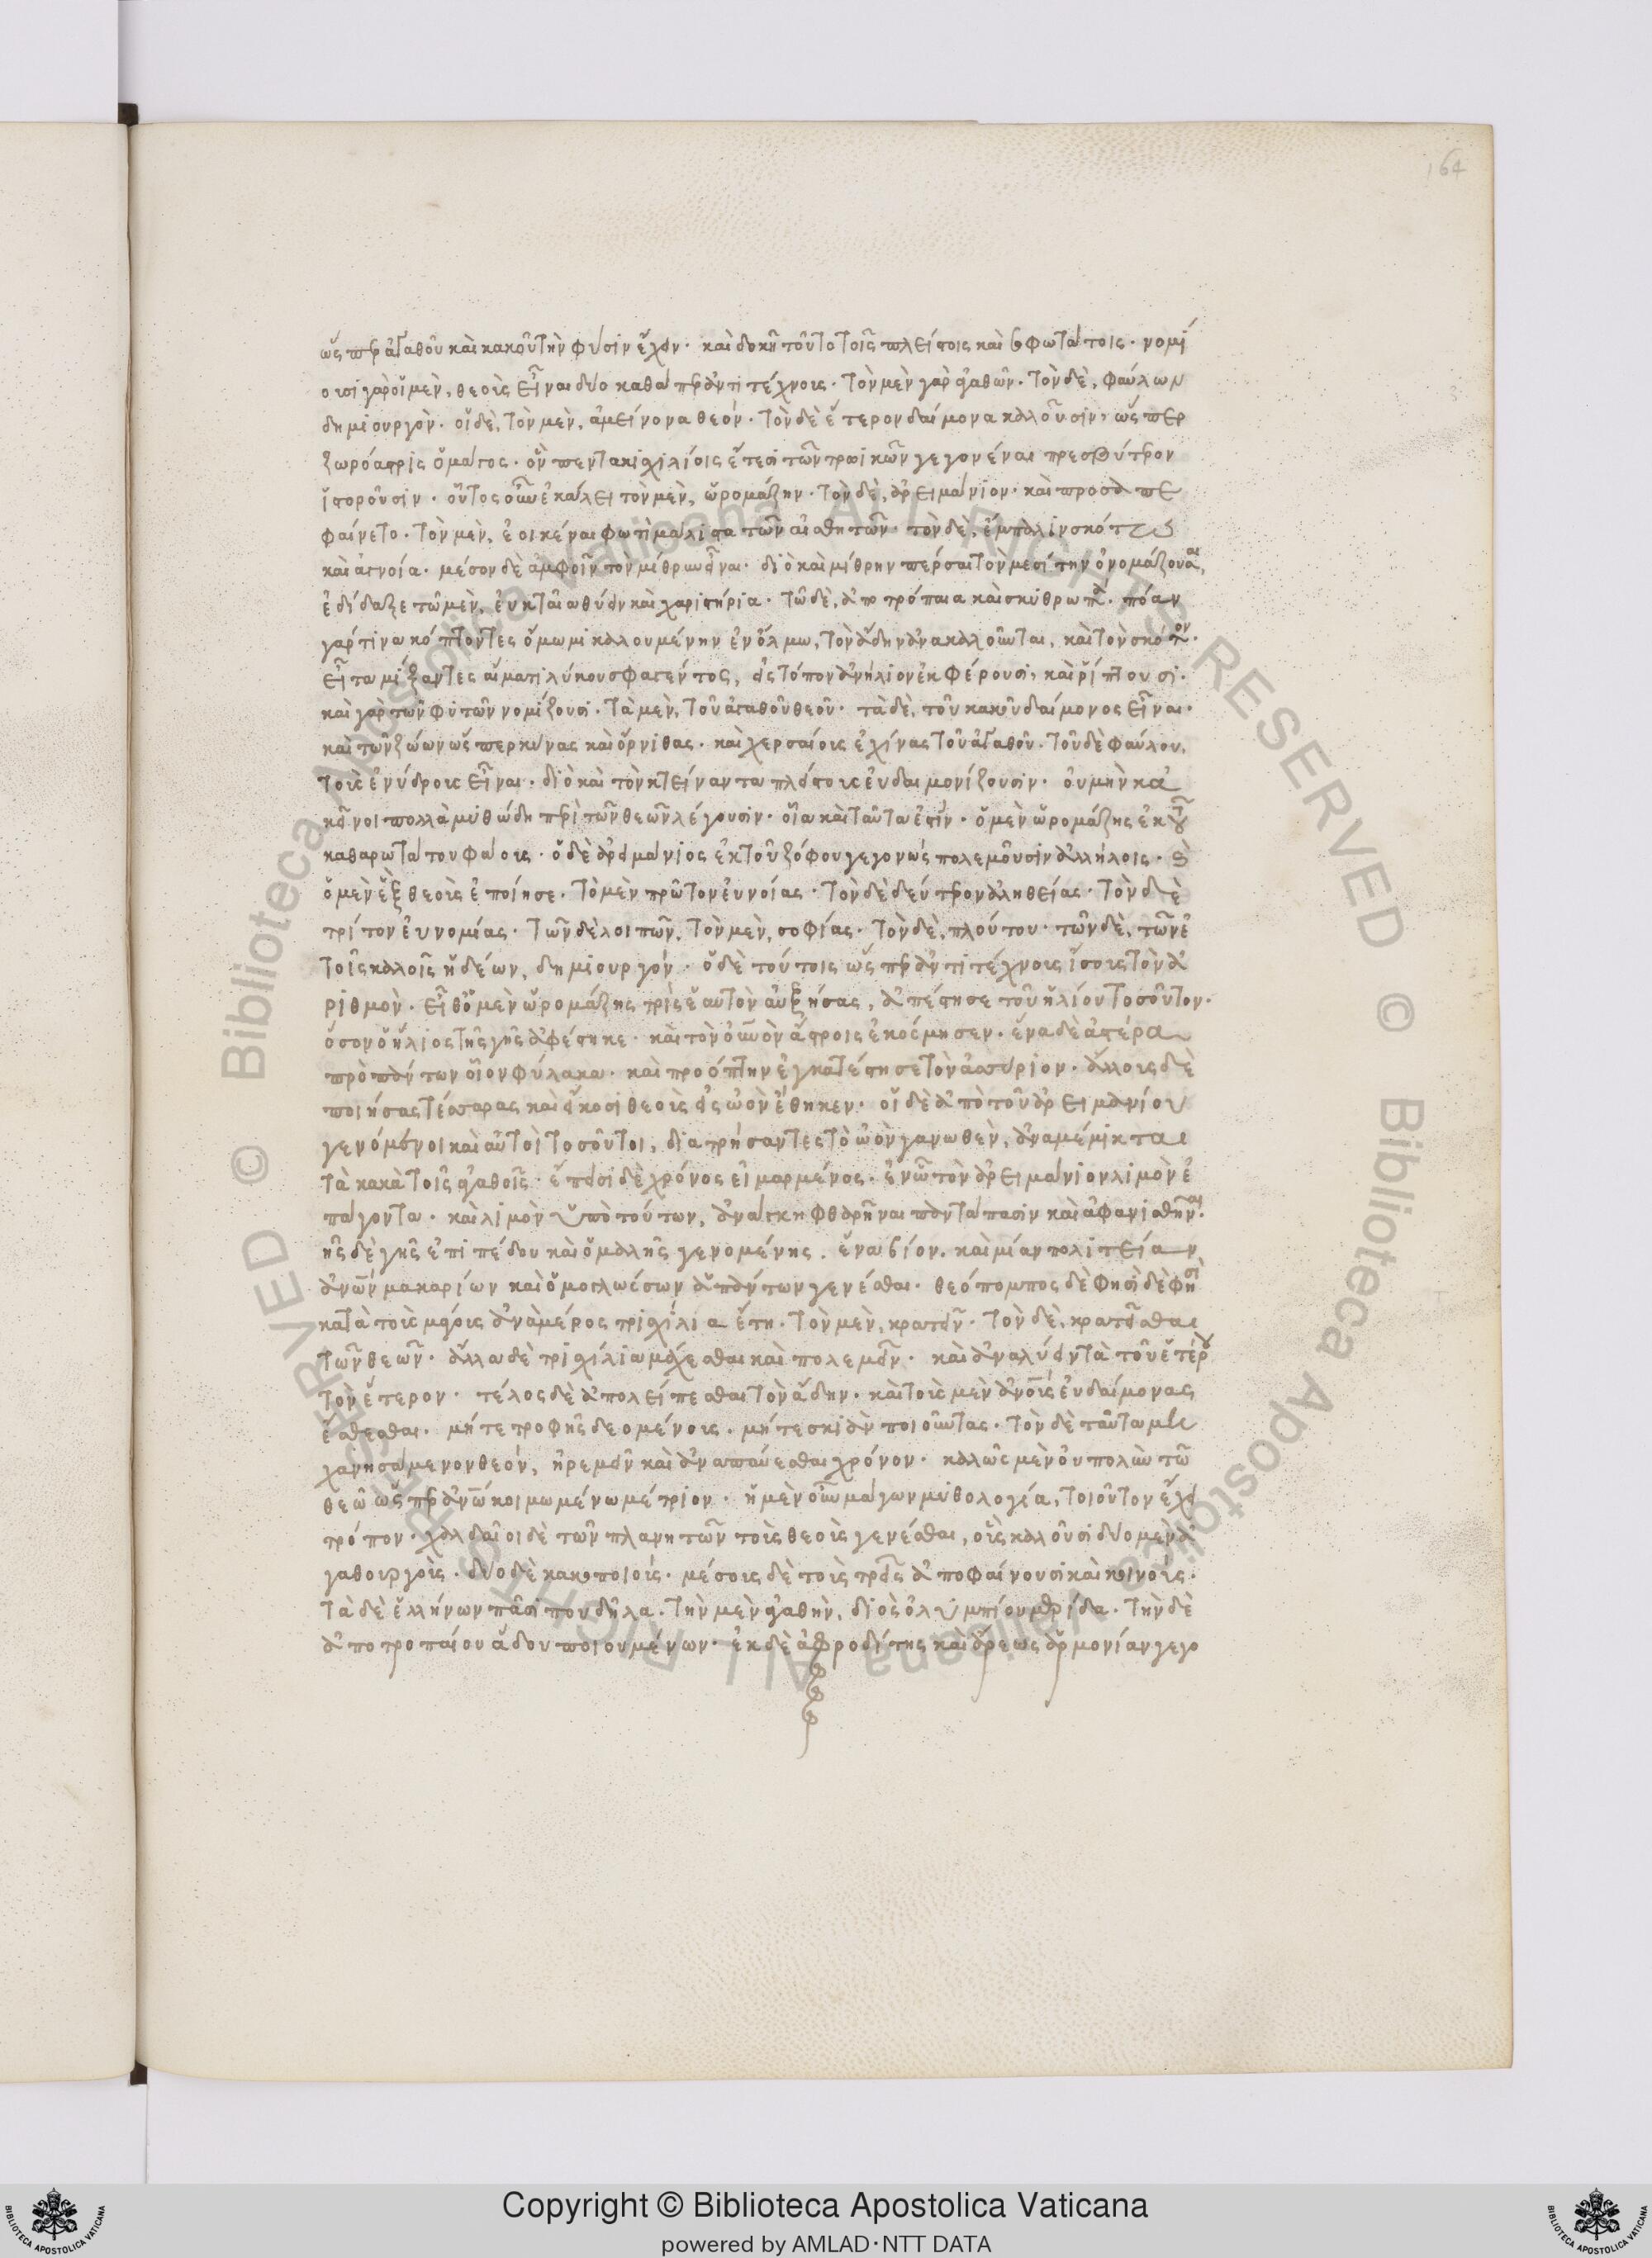 164
ὥσπερ ἀγαθοῦ καὶ κακοῦ τὴν φύσιν ἔχειν· καὶ δοκῆ τοῦτο τοῖς πλείστοις καὶ σοφωτάτοις· νομί
ουσι γὰρ οἵ μὲν, θεοὺς εἶναι δύο καθάπερ ἀντιτέχνους· τὸν μὲν γὰρ ἀγαθῶν. τὸν δὲ, φαύλων
δημιουργὸν· οἵ δὲ, τὸν μὲν, ἀμείνονα θεόν· τὸν δὲ ἕτερον δαίμονα καλοῦσιν, ὥσπερ
ζωρόαστρις ὁ μάγος· ὃν πεντακισχιλίοις ἔτεσι τῶν τρωϊκῶν γεγονέναι πρεσβύτερον
ἱστοροῦσιν· οὗτος οὖν ἐκάλει τὸν μὲν, ὡρομάζην· τὸν δὲ, ἀρειμάνιον· καὶ προσαπε
φαίνετο· τὸν μὲν, ἐοικέναι φωτὶ μάλιστα τῶν αἰσθητῶν· τὸν δὲ, ἔμπαλιν σκότω
καὶ ἀγνοία· μέσον δὲ ἀμφοῖν τὸν μίθρην εἶναι· διὸ καὶ μίθρην πέρσαι τὸν μεσίτην ὀνομάζουσι,
ἐδίδαξε τῶ μὲν, εὐκταῖα θύειν καὶ χαριστήρια· τῶ δὲ, ἀποτρόπαια καὶ σκυθρωπά· πόαν
γάρ τινα κόπτοντες ὄμωμι καλουμένην ἐν ὅλμω, τὸν ἅδην ἀνακαλοῦνται, καὶ τὸν σκότον·
εἶτα μίξαντες αἵματι λύκου σφαγέντος, εἰς τόπον ἀνήλιον ἐκφέρουσι, καὶ ῥίπτουσι·
καὶ γὰρ τῶν φυτῶν νομίζουσι· τὰ μὲν, τοῦ ἀγαθοῦ θεοῦ· τὰ δὲ, τοῦ κακοῦ δαίμονος εἶναι·
καὶ τῶν ζώων ὥσπερ κύνας καὶ ὄρνιθας· καὶ χερσαίους ἐχίνας τοῦ ἀγαθοῦ· τοῦ δὲ φαύλου,
τοὺς ἐνύδρους εἶναι· διὸ καὶ τὸν κτείναντα πλείστους εὐδαιμονίζουσιν· οὐ μὴν κἀ
κεῖνοι πολλὰ μυθώδη περὶ τῶν θεῶν λέγουσιν· οἷα καὶ ταῦτα ἐστίν· ὁ μὲν ὡρομάζης ἐκ τοῦ
καθαρωτάτου φάους· ὁ δὲ ἀρειμάνιος ἐκ τοῦ ζόφου γεγονὼς πολεμοῦσιν ἀλλήλοις· καὶ
ὁ μὲν ἓξ θεοὺς ἐποίησε· τὸ μὲν πρῶτον εὐνοίας· τὸν δὲ δεύτερον ἀληθείας· τὸν δὲ
τρίτον εὐνομίας· τῶν δὲ λοιπῶν, τὸν μὲν, σοφίας· τὸν δὲ, πλούτου· τῶν δὲ, τῶν ἐ
τοῖς καλοῖς ἡδέων, δημιουργόν· ὁ δὲ τούτοις ὥσπερ ἀντιτέχνους ἴσους τὸν ἀ
ριθμὸν· εἶθ' ὁ μὲν ὡρομάζης τρὶς ἑαυτὸν αὐξήσας, ἀπέστησε τοῦ ἡλίου τοσοῦτον·
ὅσον ὁ ἥλιος τῆς γῆς ἀφέστηκε· καὶ τὸν οὐνὸν ἄστροις ἐκόσμησεν· ἕνα δὲ ἀστέρα
πρὸ πάντων οἷον φύλακα· καὶ προόπτην ἐγκατέστησε τὸν ἀσύριον· ἄλλους δὲ
ποιήσας τέσσαρας καὶ εἴκοσι θεοὺς εἰς ὠὸν ἔθηκεν· οἱ δὲ ἀπὸ τοῦ ἀρειμανίου
γενόμενοι καὶ αὐτοὶ τοσοῦτοι, διατρήσαντες τὸ ὠὸν γανωθὲν, ἀναμέμικται
τὰ κακὰ τοῖς ἀγαθοῖς· ἔπεισι δὲ χρόνος εἱμαρμένος· ἐν ὧ τὸν ἀρειμάνιον λιμὸν ἐ
πάγοντα· καὶ λιμὸν ὑπὸ τούτων, ἀνάγκη φθαρῆναι παντάπασιν καὶ ἀφανισθῆναι·
ῆς δὲ γῆς ἐπιπέδου καὶ ὁμαλῆς γενομένης. ἕνα βίον. καὶ μίαν πολιτείαν
ἀνῶν μακαρίων καὶ ὁμογλώσσων ἁπάντων γενέσθαι· θεόπομπος δὲ φησὶ δὲ φησὶ
κατὰ τοὺς μάγους ἀνὰ μέρος τρισχίλια ἔτη· τὸν μὲν, κρατεῖν· τὸν δὲ, κρατεῖσθαι
τῶν θεῶν· ἄλλα δὲ τρισχίλια μάχεσθαι καὶ πολεμεῖν· καὶ ἀναλύειν τὰ τοῦ ἑτέρου
τὸν ἕτερον· τέλος δὲ ἀπολείπεσθαι τὸν ἅδην· καὶ τοὺς μὲν ἀνοὺς εὐδαίμονας
ἔσθεσθαι· μήτε τροφῆς δεομένους. μήτε σκιὰν ποιοῦντας· τὸν δὲ ταῦτα μη
χανησάμενον θεόν, ἠρεμεῖν καὶ ἀναπαύεσθαι χρόνον· καλῶς μὲν οὐ πολὺν τῶ
θεῶ ὥσπερ ἀνῶ κοιμωμένω μέτριον· ἡ μὲν οὖν μάγων μυθολογία, τοιοῦτον ἔχει
τρόπον· χαλδαῖοι δὲ τῶν πλανητῶν τοὺς θεοὺς γενέσθαι, οὓς καλοῦσι δύο μὲν ἀ
γαθουργοὺς· δύο δὲ κακοποιούς· μέσους δὲ τοὺς τρεῖς ἀποφαίνουσι καὶ κοινούς·
τὰ δὲ ἑλλήνων πᾶσί που δῆλα· τὴν μὲν ἀγαθὴν, διὸς ὀλυμπίου μερίδα· τὴν δὲ
ἀποτροπαίου ἅδου ποιουμένων· ἐκ δὲ ἀφροδίτης καὶ ἄρεως ἁρμονίαν γεγο
Copyright © Biblioteca Apostolica Vaticana
powered by AMLAD·NTT DATA